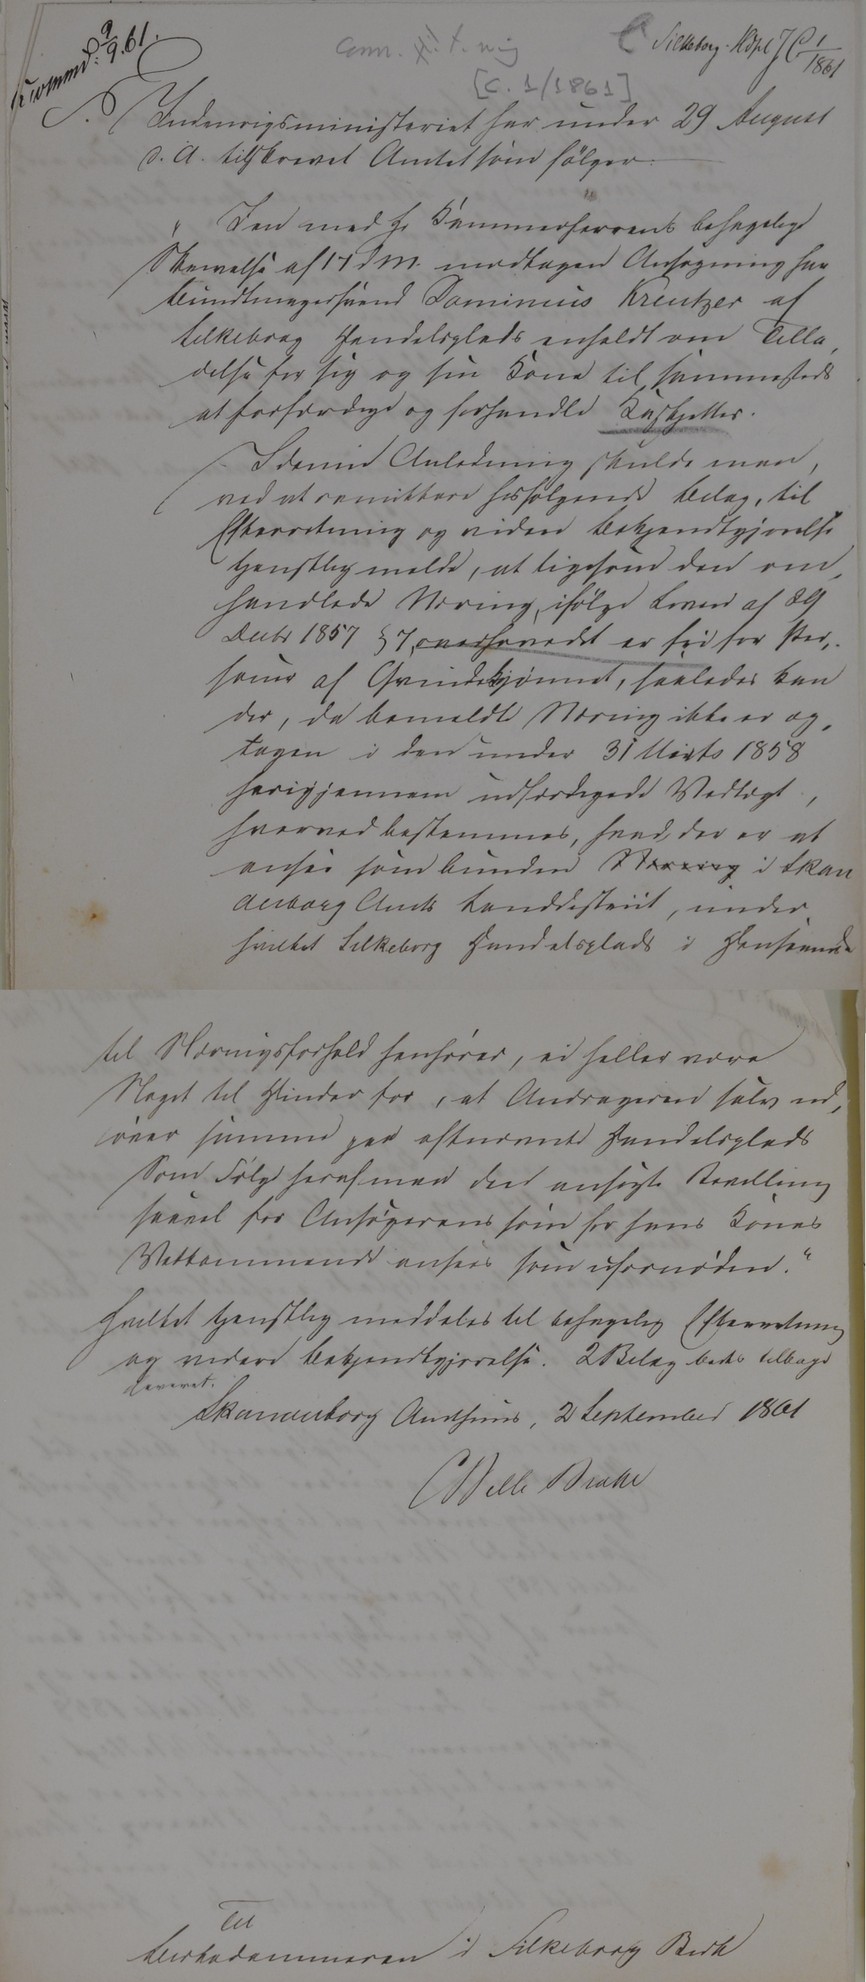 Fremmd: 9/9.61.
Silkeborg. Hdpl. J C 1/1861
[C. 1/1861]
Indenrigsministeriet har under 29 August
d. A. tilskrevet Amtet som følger:
"Den med Hr Kammerherrens behagelige
Skrivelse af 17 d M. modtagen Ansøgning har
Bundtmagersvend Dominicus Kreutzer af
Silkeborg Handelsplads anholdt om Tilla-
delse for sig og sin Kone til sammesteds
at forfærdige og forhandle Kasketter.
I denne Anledning skulde man,
ved at remittere hosfølgende Bilag, til
Efterretning og videre Bekjendtgjørelse
tjenstlig melde, at ligesom den om-
handlede Næring, ifølge Loven af 29
Decbr 1857 § 7, overhovedet er fri for Per-
soner af Qvindekjønnet, saaledes kan
der, da bemeldte Næring ikke er op-
tagen i den under 31 Marts 1858
herigjennem udfærdigede Vedtægt,
hvorved bestemmes, hvad der er at
ansee som bunden Næring i Skan
derborg Amts Landdistrict, under
hvilket Silkeborg Handelsplads i Henseende
til Næringsforhold henhører, ei heller være
Noget til Hinder for, at Andrageren selv ud-
øver samme paa ofternævnte Handelsplads
Som Følge heraf maa den ansøgte Bevilling
saavel for Ansøgerens som for hans Kones
Vedkommende ansees som ufornøden."
Hvilket tjenstlig meddeles til behagelig Efterretning
og videre Bekjendtgjørelse. 2 Bilag bedes tilbage
leveret.
Skanderborg Amthuus, 2 September 1861
To
Til
Birkedommeren i Silkeborg Birk